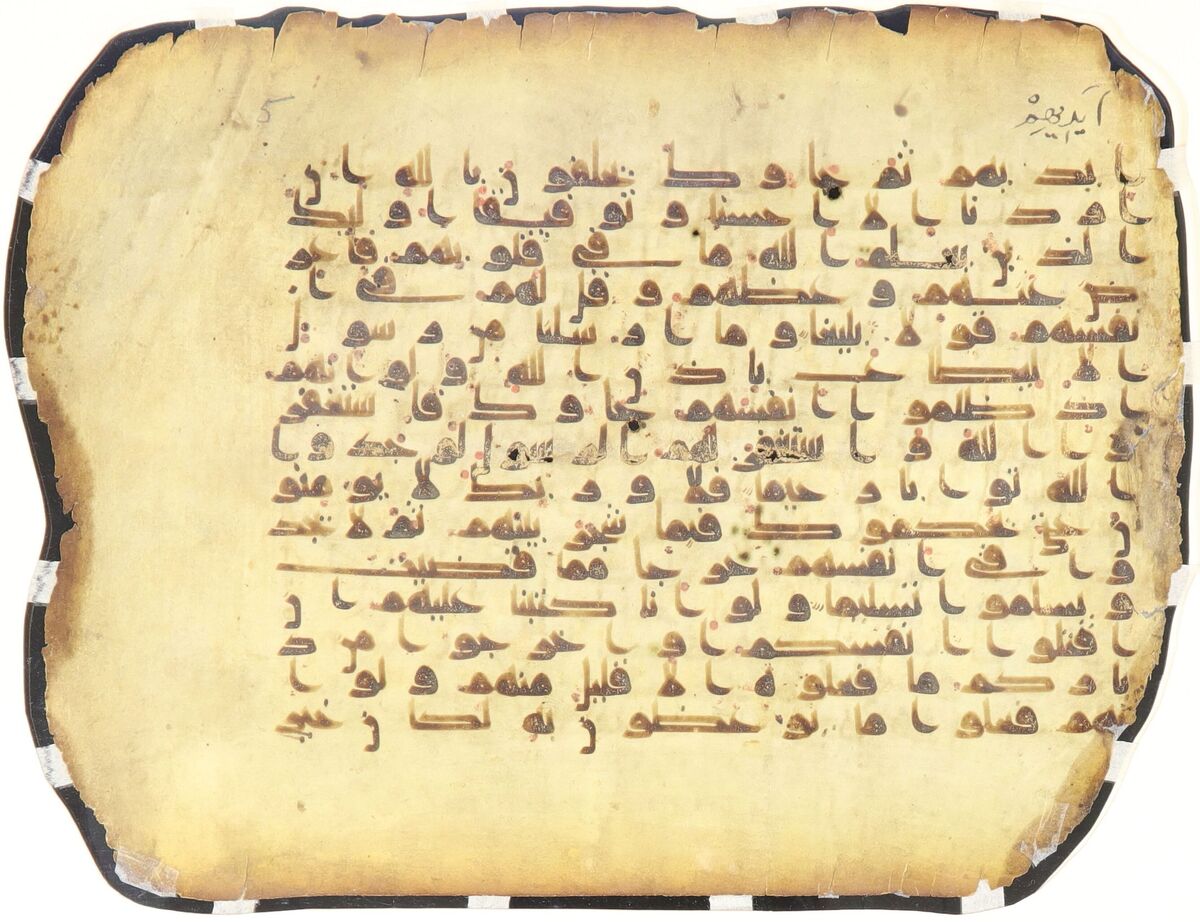 5 أَيْدِيهِمْ
ايديهم ثم جاوك يحلفون بالله ان
اردنا الا احسنا وتوفيقا اوليك
الذين يعلم الله ما في قلوبهم فاعر
ض عنهم وعظهم وقل لهم في ا
نفسهم قولا بليغا وما ارسلنا من رسول
الا ليطاع باذن الله ولو انهم
اذ ظلموا انفسهم جاوك فاستغفر
وا الله واستغفر لهم الرسول لوجدوا
الله توابا رحيما فلا وربك لا يومنو
ن حتى يحكموك فيما شجر بينهم ثم لا يجد
وا في انفسهم حرجا مما قضيت
ويسلموا تسليما ولو انا كتبنا عليهم ان
اقتلوا انفسكم او اخرجوا من د
ياركم ما فعلوه الا قليل منهم ولو ا
نهم فعلوا ما يوعظون به لكان خير